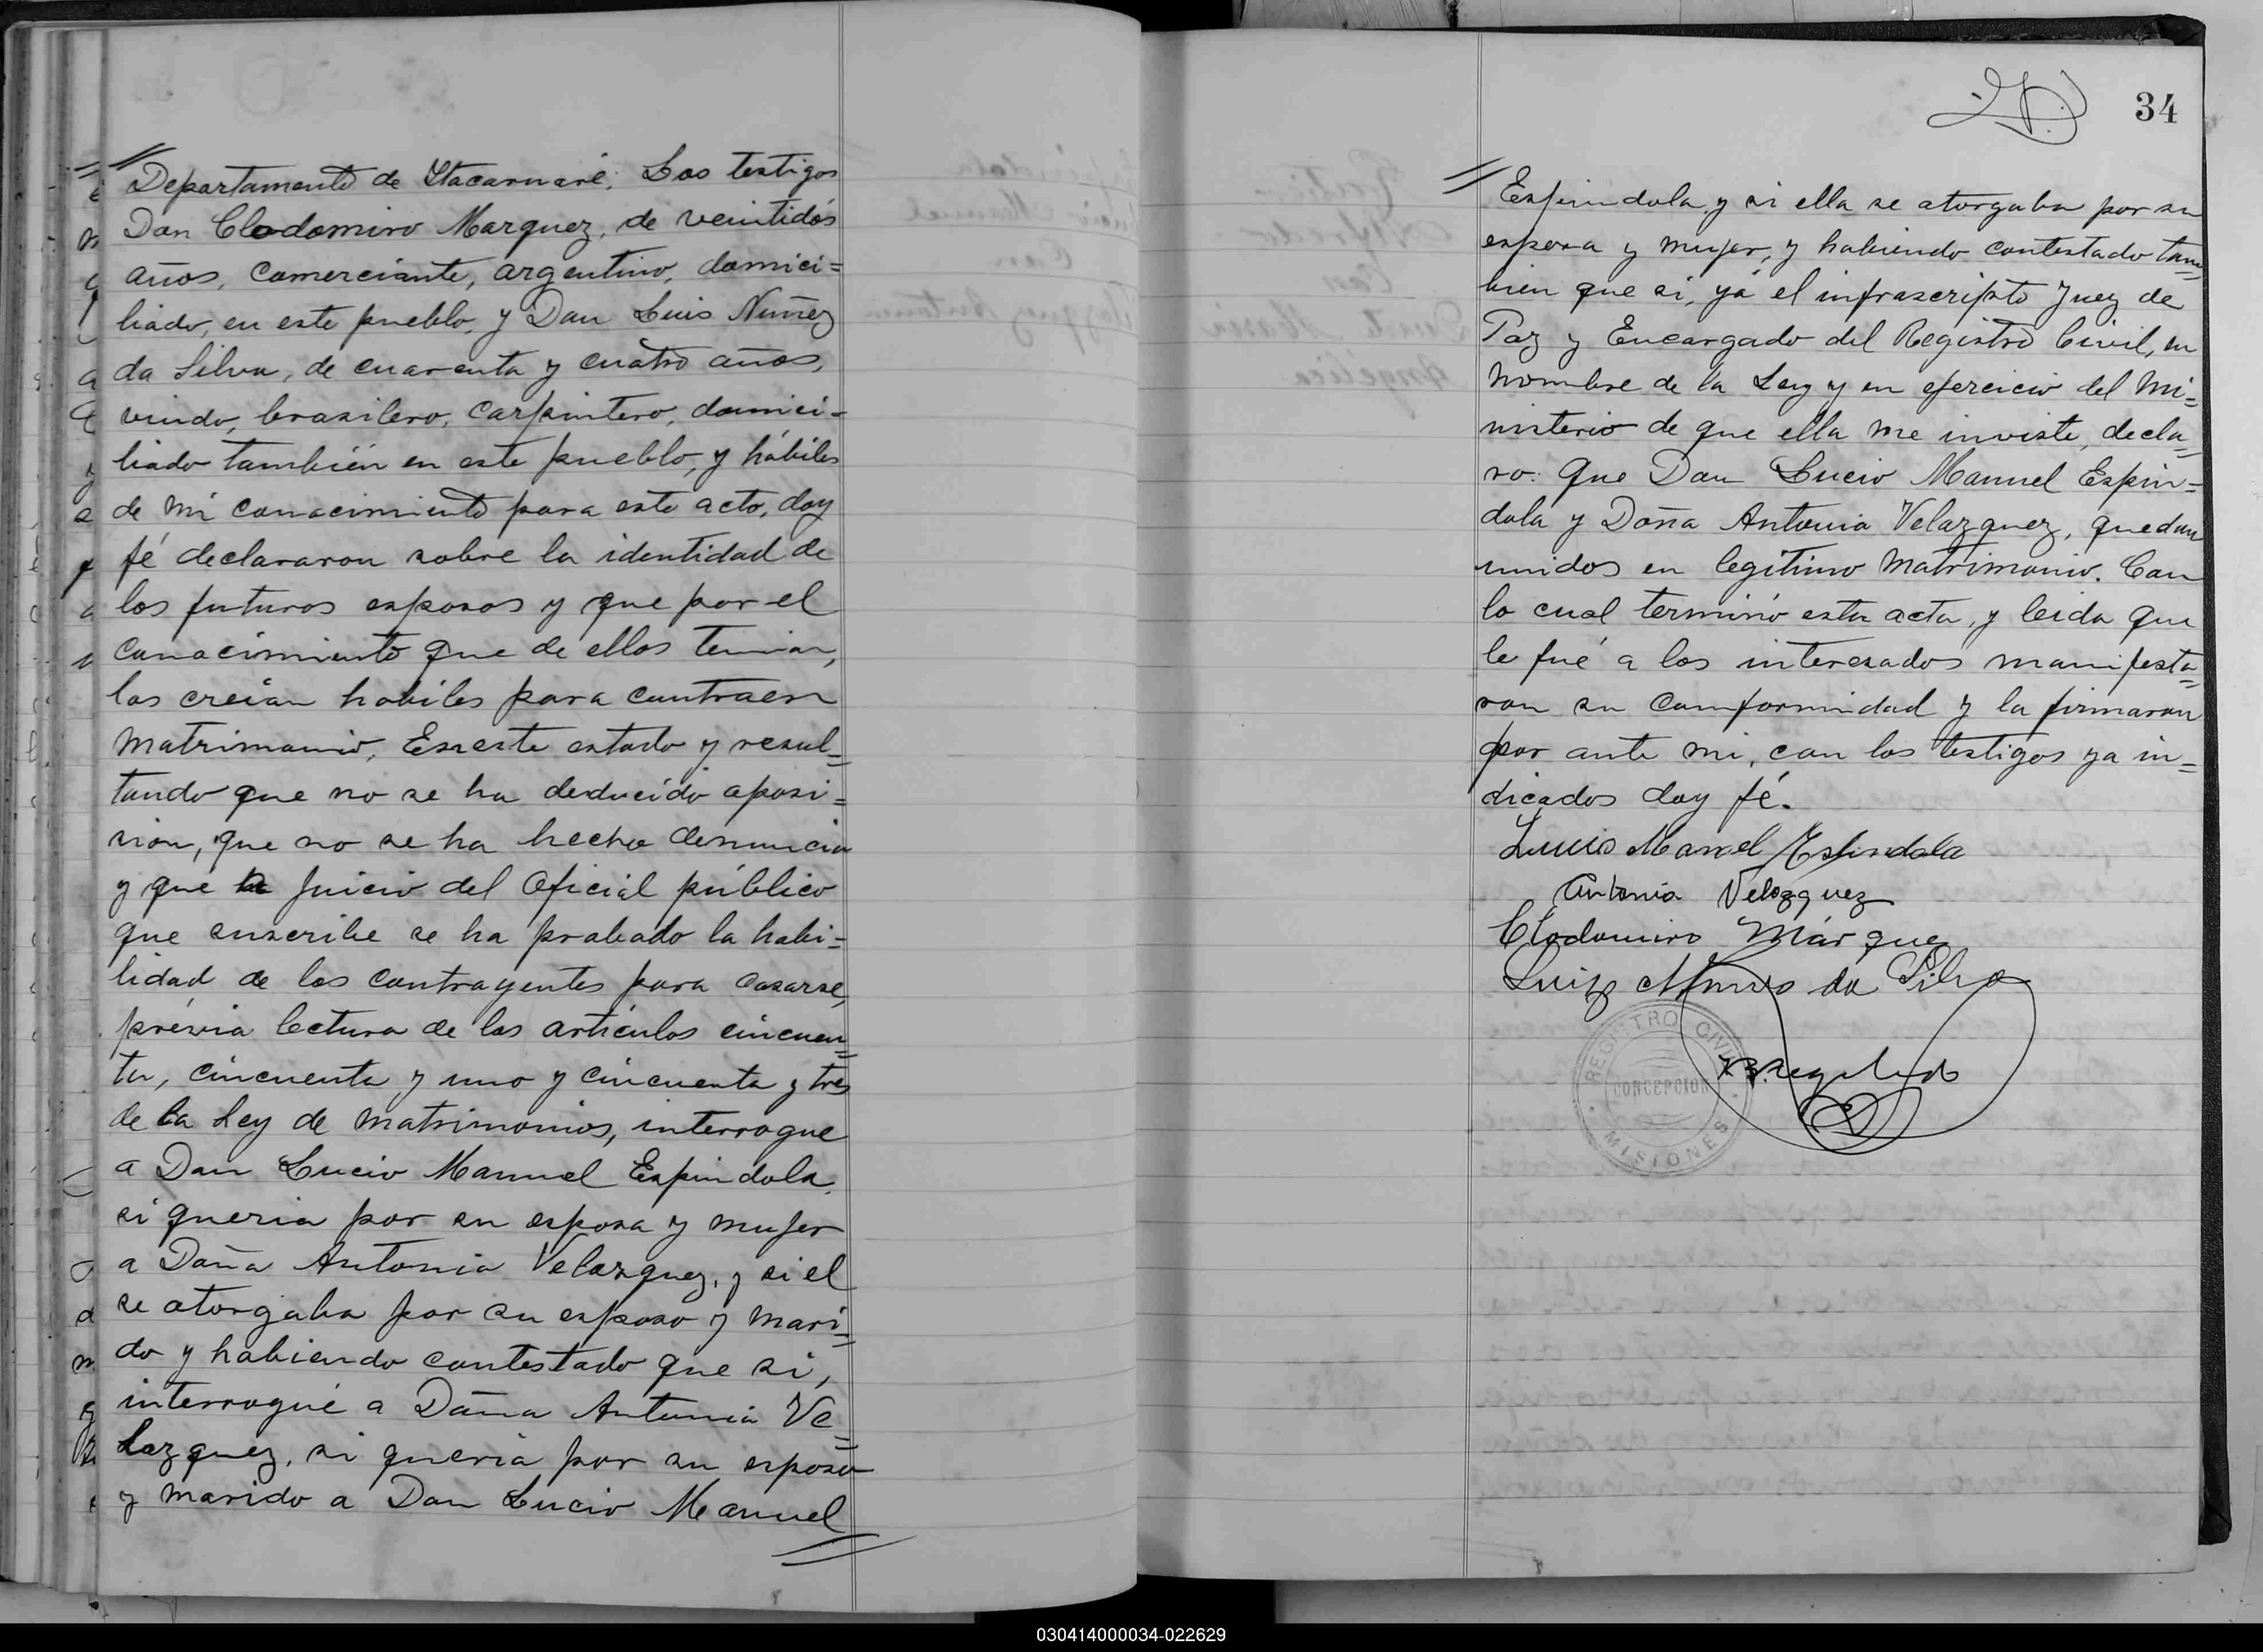 Departamento de Itacaruaré. Los testigos
Don Clodomiro Marquez, de veintidós
años, comerciante, argentino, domici=
liado, en este pueblo, y Don Luis Nuñez
da Silva, de cuarenta y cuatro años,
viudo, brasilero, carpintero, domici=
liado también en este pueblo, y hábiles
de mi conocimiento para este acto, doy
fé declararon sobre la identidad de
los futuros esposos y que por el
conocimiento que de ellos tenian,
los creian habiles para contraer
matrimonio. En este estado y resul=
tando que no se ha deducido oposi=
sion, que no se ha hecho denuncia
y que a juicio del Oficial público
que suscribe se ha probado la habi=
lidad de los contrayentes para casarse,
prévia lectura de los artículos cincuen=
ta, cincuenta y uno y cincuenta y tres
de la Ley de matrimonios, interrogue
a Don Lucio Manuel Espindola,
si queria por su esposa y mujer
a Doña Antonia Velazquez, y si el
se otorgaba por su esposo y mari=
do y habiendo contestado que si,
interrogué a Doña Antonia Ve=
lazquez, si queria por su esposo
y marido a Don Lucio Manuel
34
Espindola y si ella se otorgaba por su
esposa y mujer, y habiendo contestado tam=
bien que si, yó el infrascripto Juez de
Paz y Encargado del Registro Civil, en
nombre de la Ley y en ejercicio del Mi=
nisterio de que ella me inviste, decla=
ro: Que Don Lucio Manuel Espin=
dola y Doña Antonia Velazquez, quedan
unidos en legítimo matrimonio. Con
lo cual terminó esta acta, y leida que
le fué a los interesados manifesta=
ron su conformidad y la firmaron
por ante mi, con los testigos ya in=
dicados doy fé.
Lucio Manuel Espindola
Antonia Velazquez
Clodomiro Márquez
Luiz Nunes da Silva
REGISTRO CIVIL
CONCEPCION
MISIONES
030414000034-022629